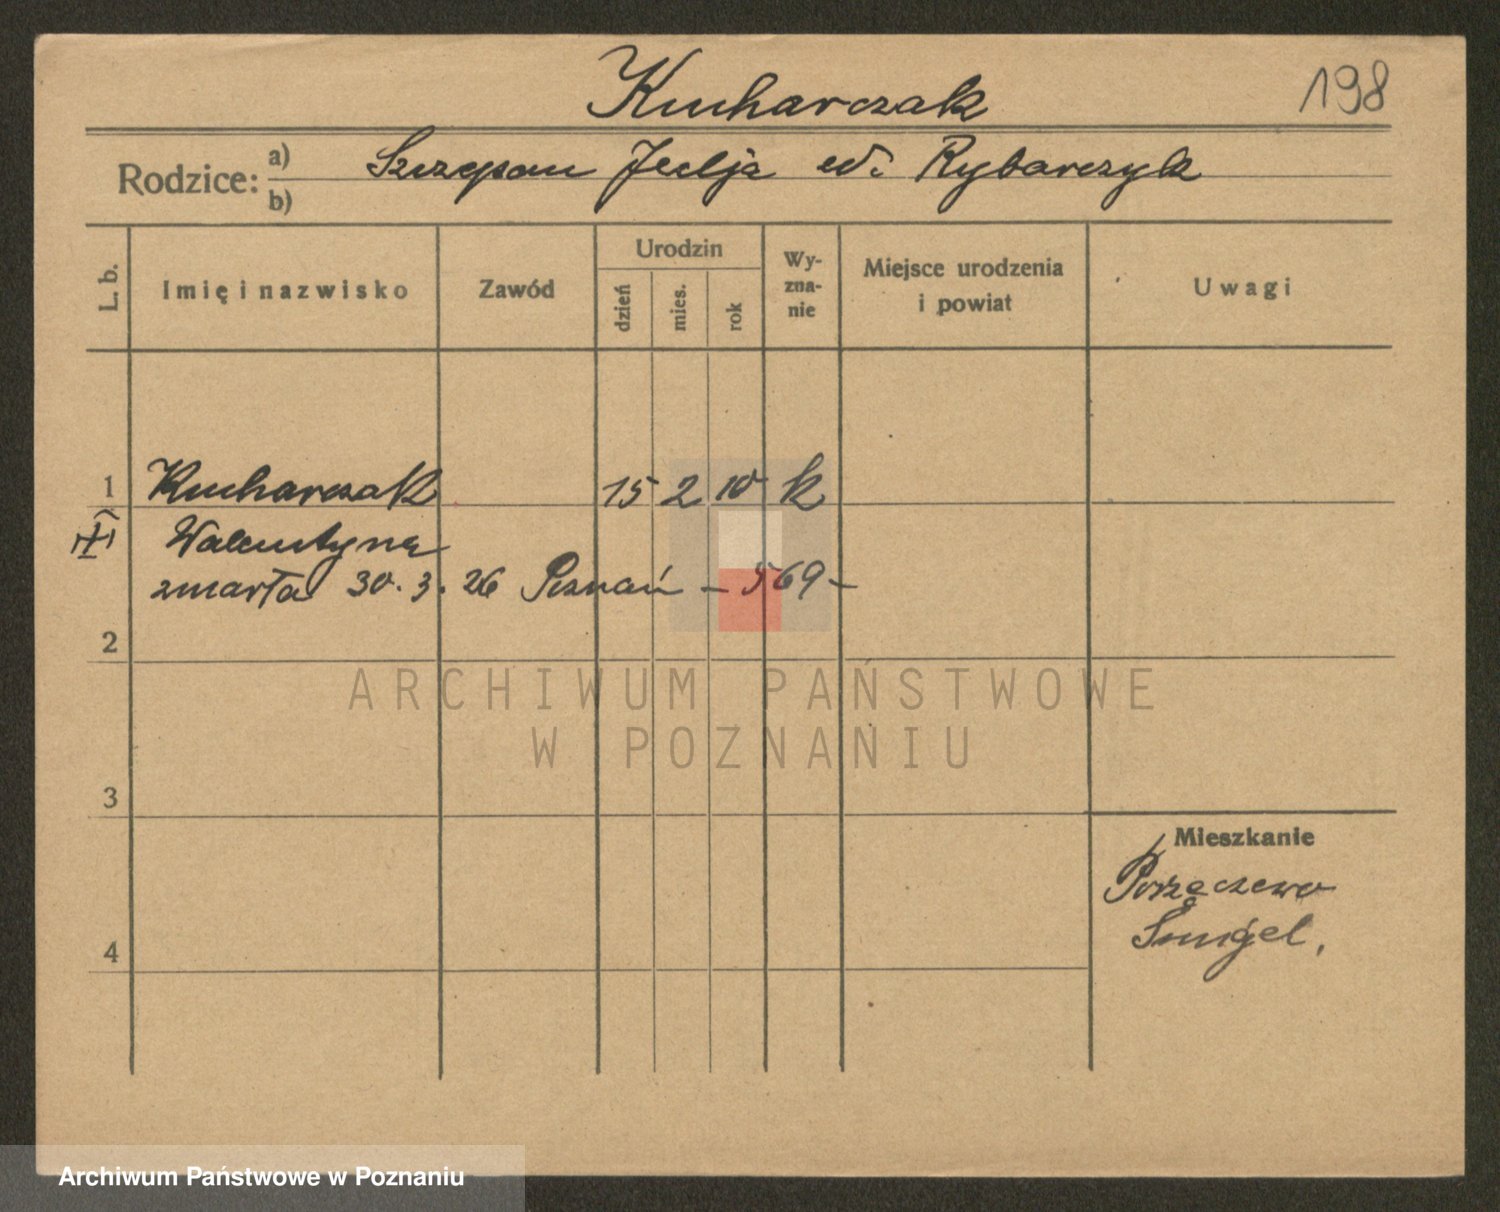 Kucharczak
198
Rodzice: a) b)
Szczepan Jadwiga Rybarczyk
L. b.
Imię i nazwisko
Zawód
Urodzin
dzień
mies.
rok
Wy-
zna-
nie
Miejsce urodzenia
i powiat
Uwagi
1 Kucharczak 15 2 10 k
Walentyna
zmarła 30.3.26 Poznań – 569 –
2
3
4
Mieszkanie
Śmigel,
ARCHIWUM PAŃSTWOWE
W POZNANIU
Archiwum Państwowe w Poznaniu